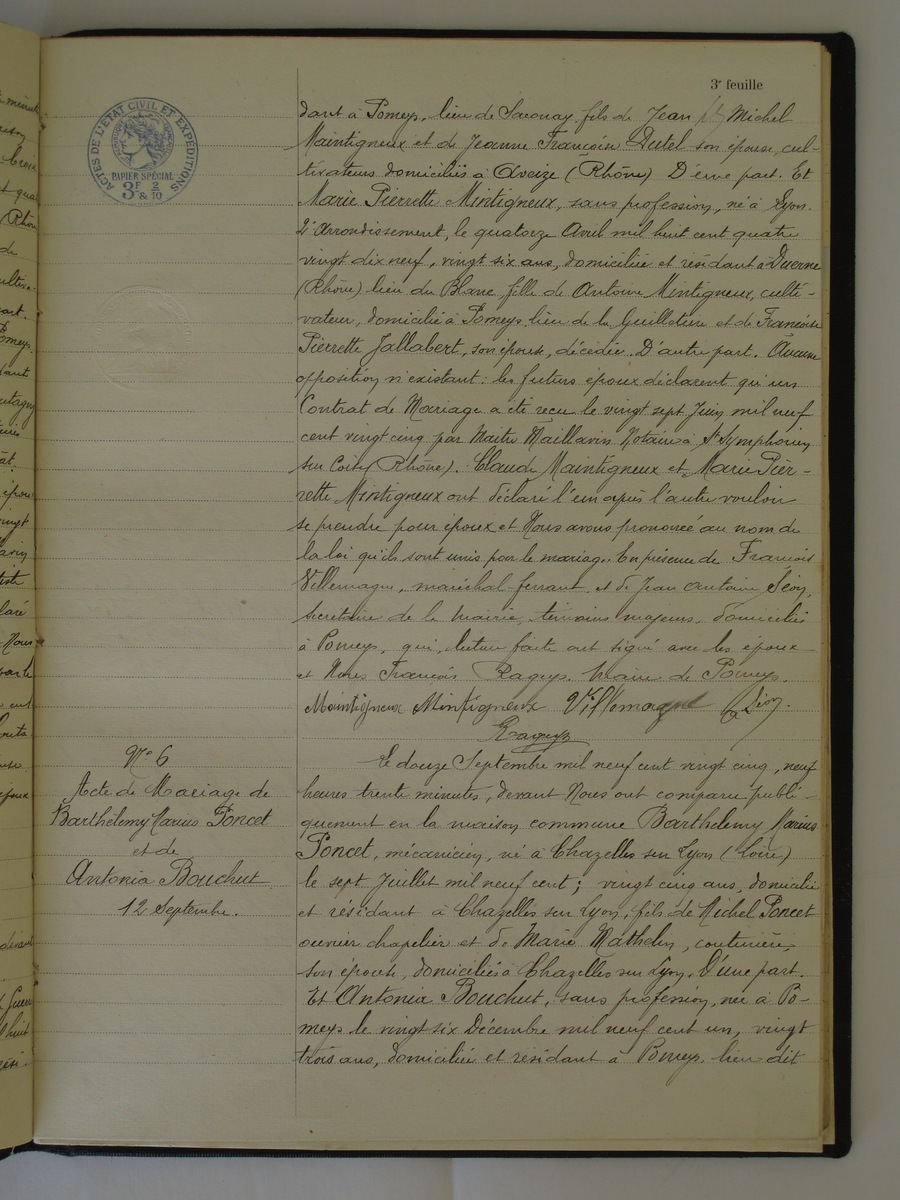 3e feuille
ACTES DE L'ÉTAT CIVIL ET EXPÉDITIONS
PAPIER SPÉCIAL
3F & 2/10
dant à Pomeys, lieu de Savonay, fils de Jean Michel
Maintigneux et de Jeanne Françoise Dutel son épouse, cul-
tivateurs domiciliés à Aveize (Rhône) D'une part. Et
Marie Pierrette Mintigneux, sans profession, né à Lyon.
2e Arrondissement, le quatorze Avril mil huit cent quatre
vingt dix neuf, vingt six ans, domiciliée et résidant à Duerne
(Rhône) lieu du Blanc fille de Antoine Mintigneux, culti-
vateur, domicilié à Pomeys lieu de la Guilletière et de Françoise
Pierrette Jallabert, son épouse, décédée. D'autre part. Aucune
opposition n'existant: les futurs époux déclarent qu'un
Contrat de Mariage a été reçu le vingt sept Juin mil neuf
cent vingt cinq par Maître Maillavin Notaire à St Symphorien
sur Coise (Rhône). Claude Maintigneux et Marie Pier-
rette Mintigneux ont déclaré l'un après l'autre vouloir
se prendre pour époux et Nous avons prononcé au nom de
la loi qu'ils sont unis par le mariage. En présence de François
Villemagne, maréchal ferrant et de Jean Antoine
secrétaire de la mairie, témoins majeurs, domiciliés
à Pomeys, qui, lecture faite ont signé avec les époux
et Nous François Rageys Maire de Pomeys.
Maintigneux Mintigneux Villemagne
Rageys
No 6
Acte de Mariage de
Barthélemy Marius Poncet
et de
Antonia Bouchut
12 Septembre.
Le douze Septembre mil neuf cent vingt cinq, neuf
heures trente minutes, devant Nous ont comparu publi-
quement en la maison commune Barthélemy Marius
Poncet, mécanicien, né à Chazelles sur Lyon (Loire)
le sept Juillet mil neuf cent; vingt cinq ans, domicilié
et résidant à Chazelles sur Lyon, fils de Michel Poncet
ouvrier chapelier et de Marie Mathelin, couturière,
son épouse, domiciliés à Chazelles sur Lyon. D'une part.
Et Antonia Bouchut, sans profession, née à Po-
meys le vingt six Décembre mil neuf cent un, vingt
trois ans, domiciliée et résidant à Pomeys lieu dit